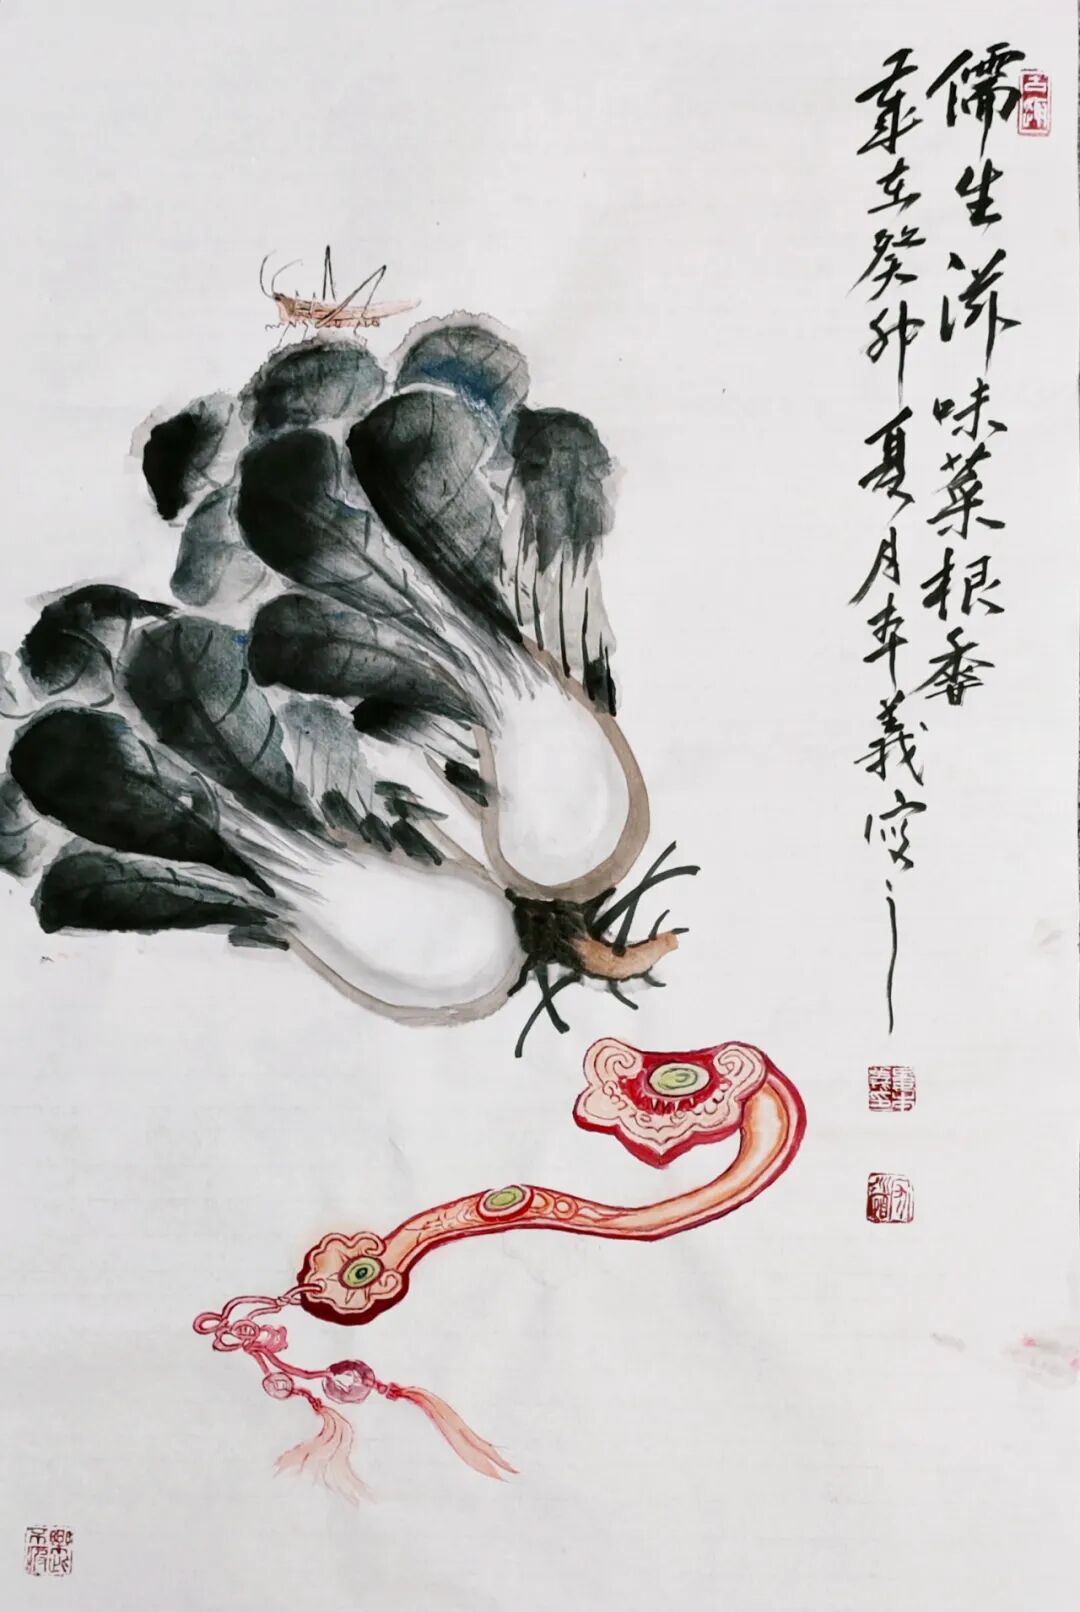 儒生滋味菜根香
歲在癸卯夏月本義寫之